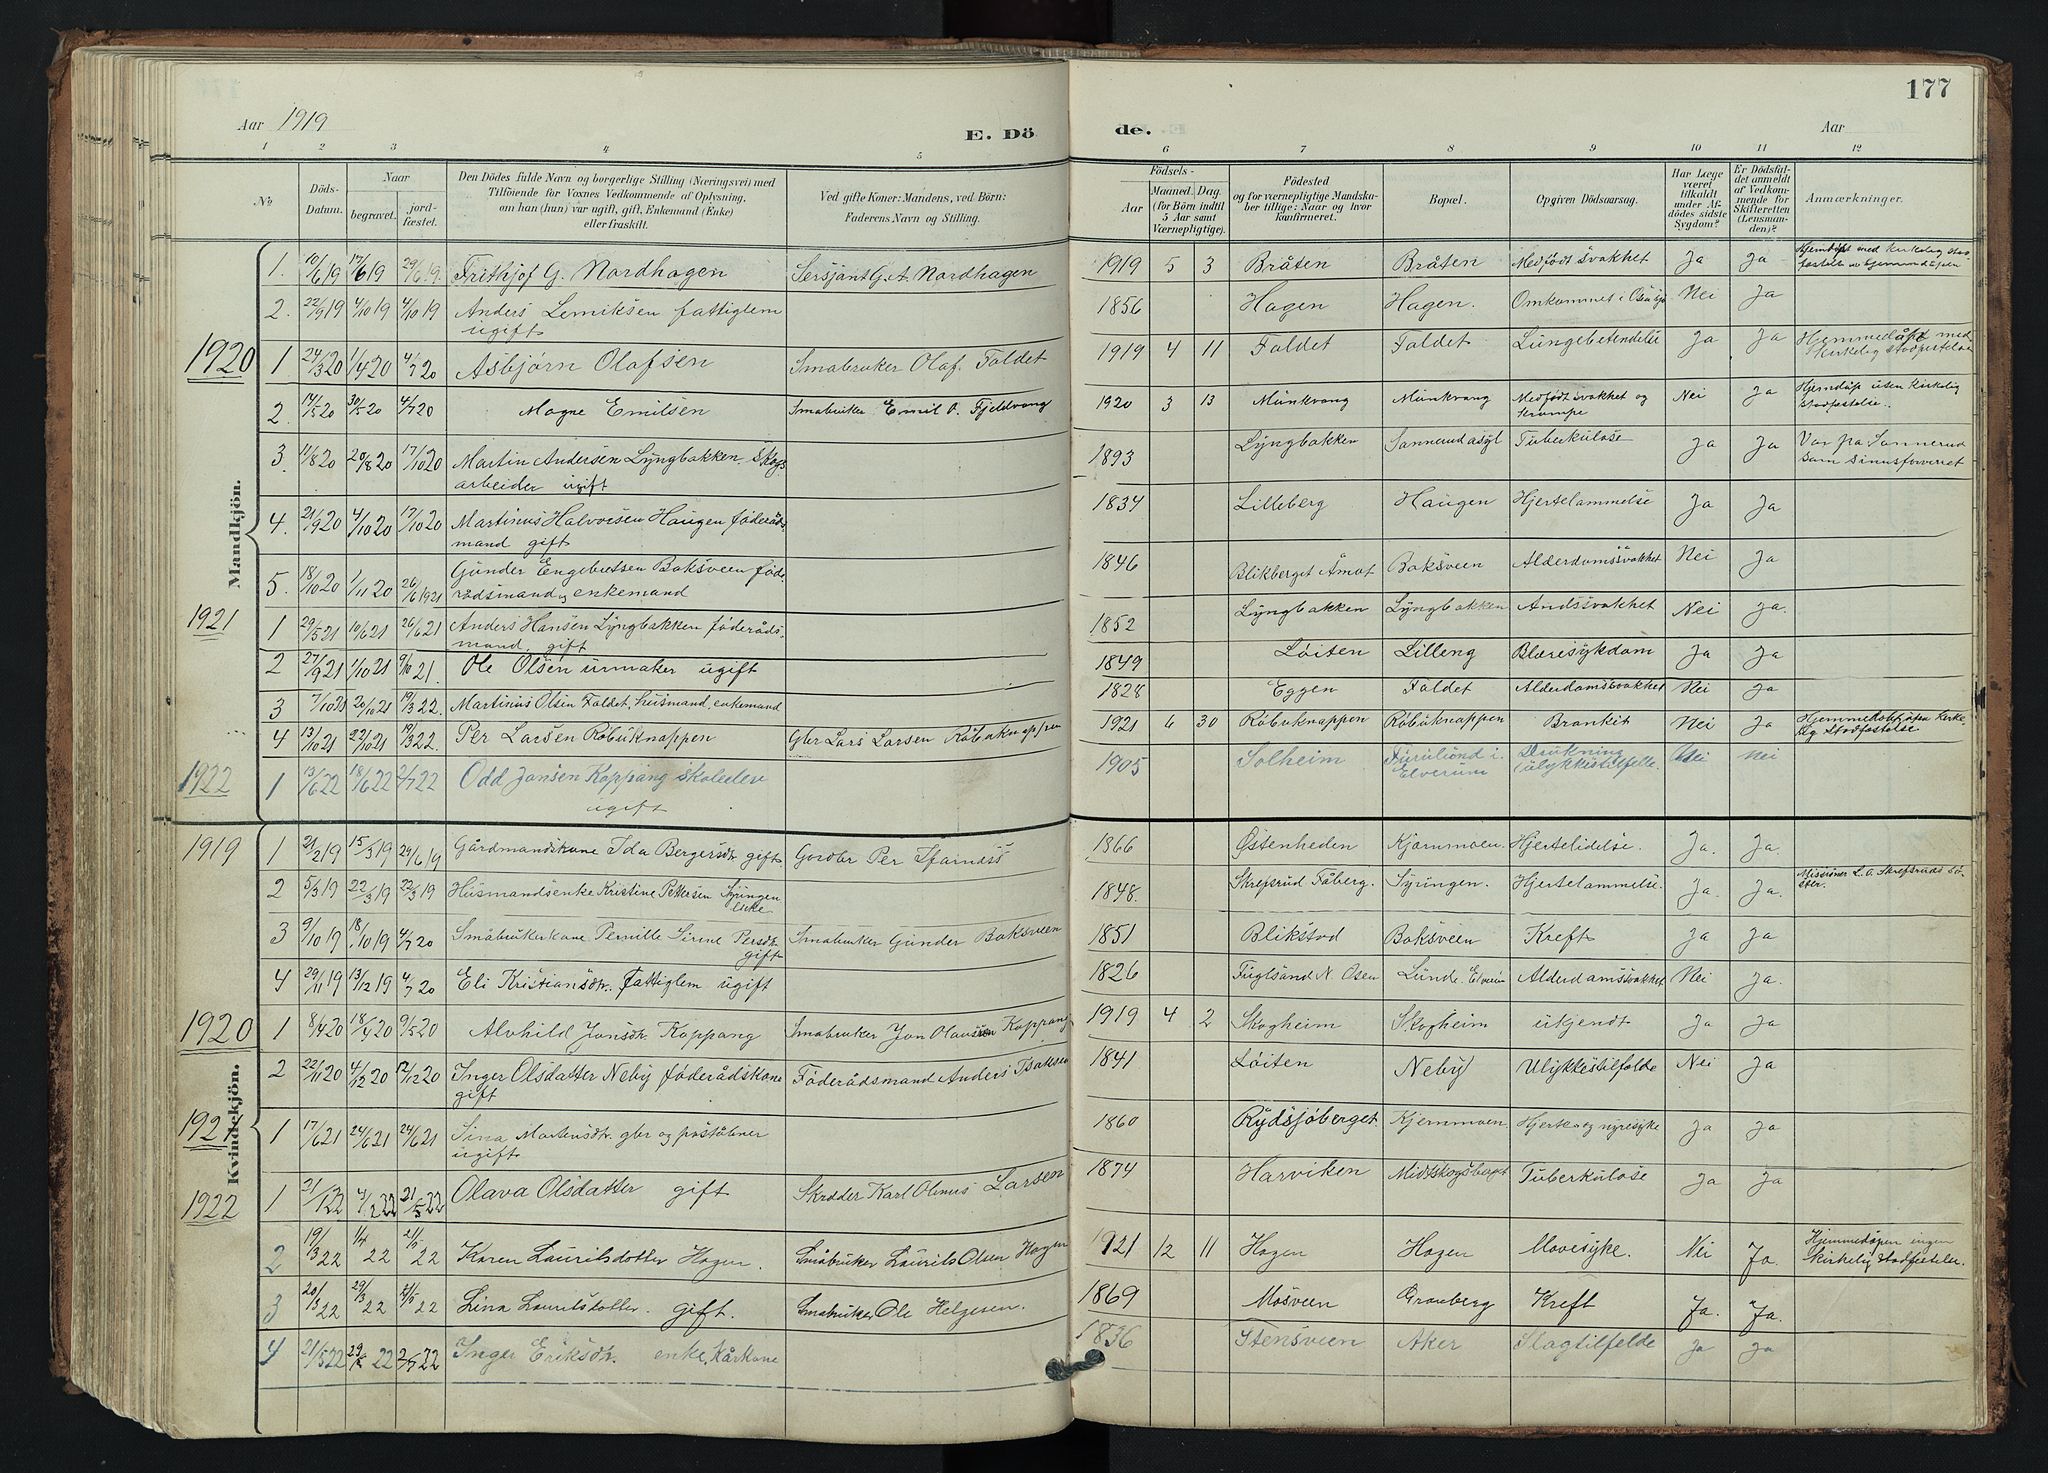 177
Aar 1919
E. Dö
de.
Aar
1 2 3 4 5 6 7 8 9 10 11 12
No
Döds-Datum.
Naar
begravet.
jord-fæstet.
Den Dödes fulde Navn og borgerlige Stilling (Næringsvei) med
Tilföiende for Voxnes Vedkommende af Oplysning,
om han (hun) var ugift, gift, Enkemand (Enke)
eller fraskilt.
Ved gifte Koner: Mandens, ved Börn:
Faderens Navn og Stilling.
Födsels-
Aar
Maaned. Dag.
(for Börn indtil
5 Aar samt
Værnepligtige).
Födested
og for værnepligtige Mandska-
ber tillige: Naar og hvor
konfirmeret.
Bopæl.
Opgiven Dödsaarsag.
Har Læge
været
tilkaldt
under Af-
dödes sidste
Sygdom?
Er Dödsfal-
det anmeldt
af Vedkom-
mende for
Skifteretten
(Lensman-
den)?
Anmærkninger.
Mandkjön.
1. 10/6 19 17/6 19 29/6 19. Frithjof G. Nordhagen Sersjant G. A. Nordhagen 1919 5 3 Bråten Bråten Medfødt svakhet Ja Ja
2. 22/9 19 4/10 19 4/10 19 Anders Lemiksen fattiglem 1856 Hagen Hagen. Omkommet i Nei Ja
ugift
1920 1 24/3 20 1/4 20 4/7 20 Asbjørn Olafsen Småbruker Olaf. Faldet 1919 4 11 Faldet Faldet Lungebetendelse Ja Ja Hjemmedåpt med
kirkelig stadfestelse
2. 14/5 20 30/5 20 4/7 20 Magne Emilsen Småbruker Emil O. Fjeldvang 1920 3 13 Munkvang Munkvang Medfødt svakhet og Nei Ja Hjemdåp uten kirkelig
krampe stadfestelse.
3. 11/8 20 20/8 20 17/10 20 Martin Andersen Lyngbakken. Skogs 1893 Lyngbakken Sannerud asyl Tuberkulose Ja Ja Var på Sannerud
arbeider ugift som sinnsforvirret
4. 21/9 20 4/10 20 17/10 20 Martinus Halvorsen Haugen føderåds- 1834 Lilleberg Haugen Hjertelammelse Ja Ja
mand gift
5. 18/10 20 1/11 20 26/6 1921 Gunder Engebretsen Baksveen føde 1846 Blikberget Åmot Baksveen Alderdomssvakhet Nei Ja
rådsmand og enkemand
1921 1 29/5 21 10/6 21 26/6 21 Anders Hansen Lyngbakken føderåds- 1852 Lyngbakken Lyngbakken Åndssvakhet Nei Ja.
mand. gift
2 27/9 21 1/10 21 9/10 21. Ole Olsen urmaker ugift 1849 Løiten Lilleng Blæresykdom Ja Ja
3 7/10 21 20/10 21 19/3 22. Martinus Olsen Faldet, husmand, enkemand 1828 Eggen Faldet Alderdomssvakhet Nei Ja
4 13/10 21 22/10 21 19/3 22. Per Larsen Røbuknappen Gbr Lars Larsen Røbuknappen 1921 6 30 Røbuknappen Røbuknappen Bronkit Nei Ja
1922 1 13/6 22 18/6 22 2/7 22 Odd Jansen Koppang skoleelev 1905 Solheim Furulund i Drukning Nei Nei
ugift Elverum (ulykkestilfelle.
Kvindekjön.
1919 1 21/2 19 15/3 19 29/6 19 Gårdmandskone Ida Bergersdr. gift Gardbr Per 1866 Østenheden Kjernmoen. Hjertelidelse. Ja. Ja.
2 5/3 19 22/3 19 22/3 19 Husmandsenke Kristine Pettersen Syringen 1848. Skrefsrud Fåberg. Syringen. Hjertelammelse. Ja. Ja. Missionær L. O. Skrefsruds sø-
enke ster.
3 9/10 19 18/10 19 4/7 20 Småbrukerkone Pernille Sirine Persdtr. Småbruker Gunder Baksveen 1851 Blikstad Baksveen Kreft Ja Ja
gift
4 29/11 19 13/12 19 4/7 20 Eli Kristiansdtr. Fattiglem ugift 1826 Fuglsand N. Osen Lunde. Elverum Alderdomssvakhet Nei Ja.
1920 1 8/4 20 18/4 20 9/5 20 Alvhild Jonsdtr. Koppang Småbruker Jon Olaussen Koppang 1919 4 2 Skogheim Skogheim ukjendt Ja Ja
2 22/11 20 4/12 20 12/12 20 Inger Olsdatter Neby føderådskone Føderådsmand Anders Isaksen 1841 Løiten Neby Ulykkestilfælde Nei Ja
gift
1921 1 17/6 21 24/6 21 24/6 21 Sina Martensdtr. gbr og poståbner 1860 Rydsjøberget. Kjernmoen. Hjerte og nyresyke Ja Ja
ugift
1922 1 21/1 22 4/2 22 21/5 22 Olava Olsdatter gift Skrædder Karl Olinus Larsen 1874 Harviken Midtskogsberget Tuberkulose Ja Ja
2 19/3 22 1/4 22 21/5 22 Karen Lauritsdotter Hagen. Småbruker Laurits Olsen Hagen 1921 12 11 Hagen Hagen Mavesyke. Nei Ja. Hjemmedøpen ingen
kirkelig stadfestelse.
3 20/3 22 29/3 22 21/5 22 Lina Lauritsdotter. gift. Småbruker Ole Helgesen. 1869 Mosveen Granberg Kreft Ja. Ja.
4 21/5 22 29/5 22 2/7 22 Inger Eriksdtr. enke, Kårkone 1836 Stensveen Aker Slagtilfelde Ja Ja